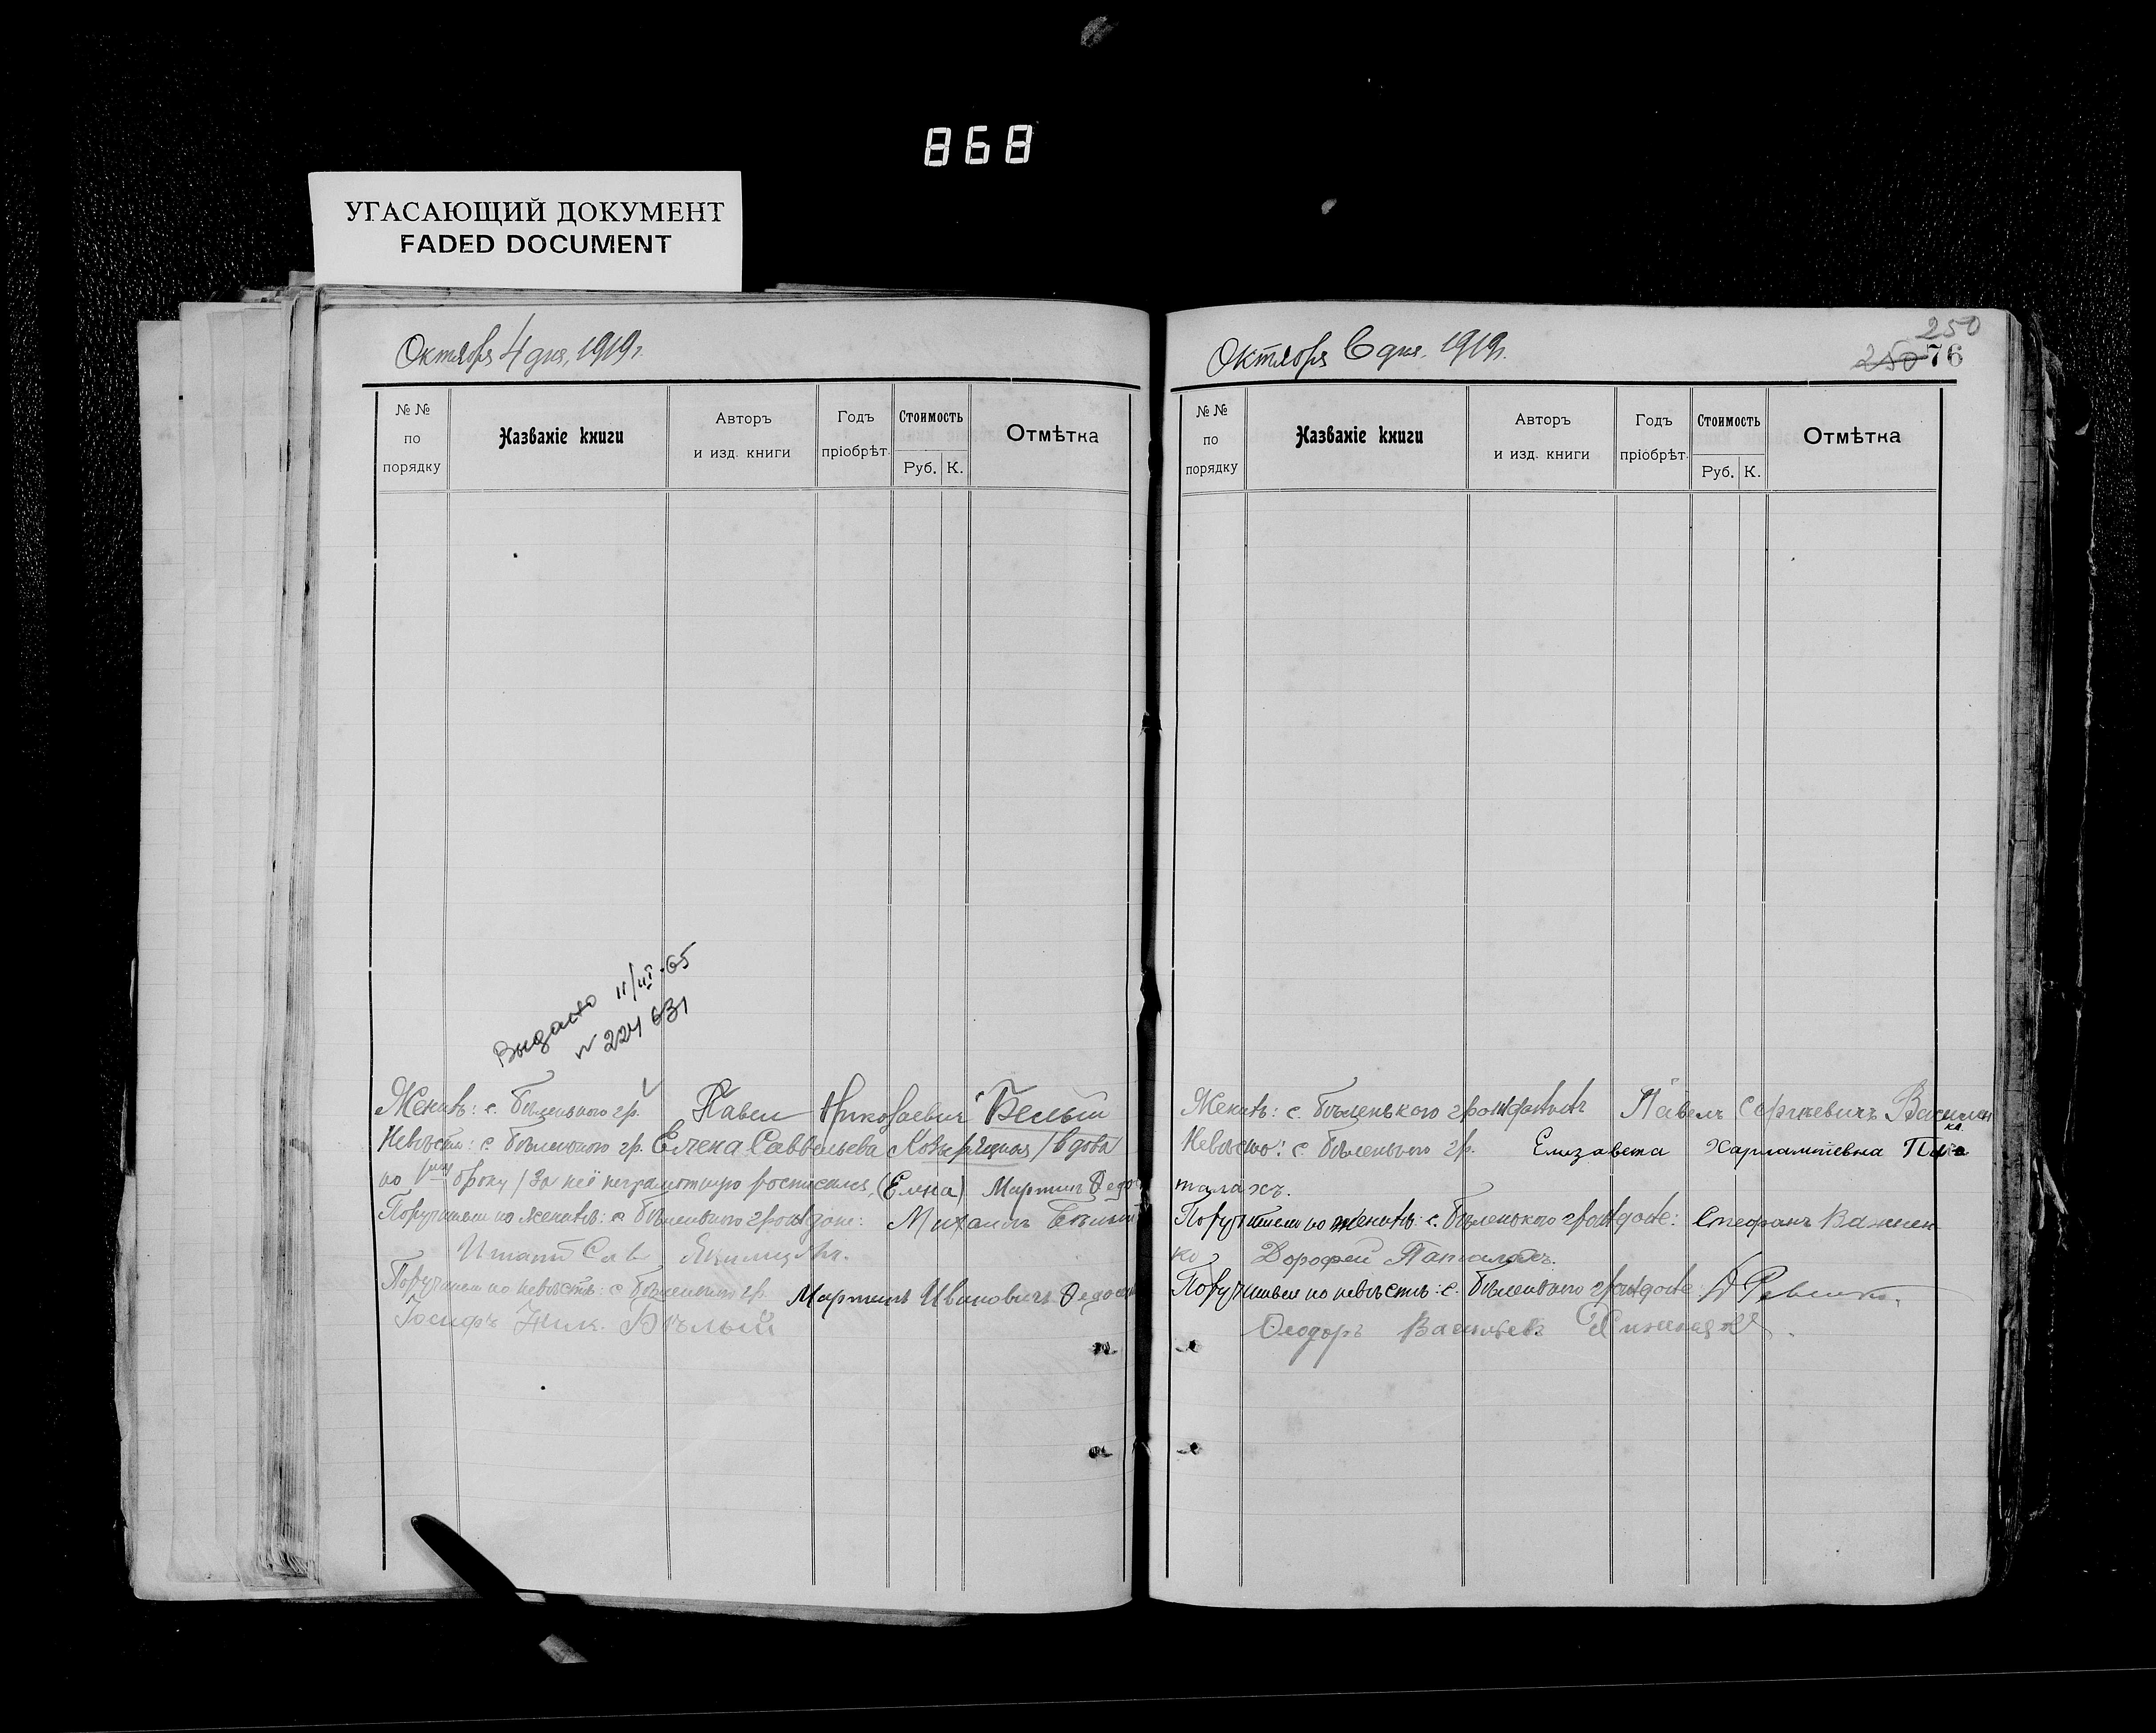 868
УГАСАЮЩИЙ ДОКУМЕНТ
FADED DOCUMENT
Октября 4 дня, 1919 г.
№ № по порядку
Названіе книги
Авторъ и изд. книги
Годъ пріобрѣт.
Стоимость
Руб. К.
Отмѣтка
Выдано 11/III-65
№ 224631
Женихъ: с. Бѣленького гр. Павел Николаевич Белый
Невѣста: с. Бѣленького гр. Елена Саввельева /вдова
по 1му браку/ За неё неграмотную росписался, (Елена) Мартин
Поручители по женихѣ: с. Бѣленького граждане: Михаилъ Бѣлый
Поручители по невѣстѣ: с. Бѣленького гр. Мартинъ Ивановичъ
Іосифъ Ник. Бѣлый
250
250 76
Октября 6 дня, 1919 г.
№ № по порядку
Названіе книги
Авторъ и изд. книги
Годъ пріобрѣт.
Стоимость
Руб. К.
Отмѣтка
Женихъ: с. Бѣленького гражданинъ Павелъ Сергѣевичъ
Невѣста: с. Бѣленького гр. Елизавета Харлампіевна Па
талахъ.
Поручители по женихѣ: с. Бѣленького граждане: Стефанъ Важнен
ко Дорофей Паталахъ.
Поручители по невѣстѣ: с. Бѣленького граждане:
Ѳеодоръ Васильевъ